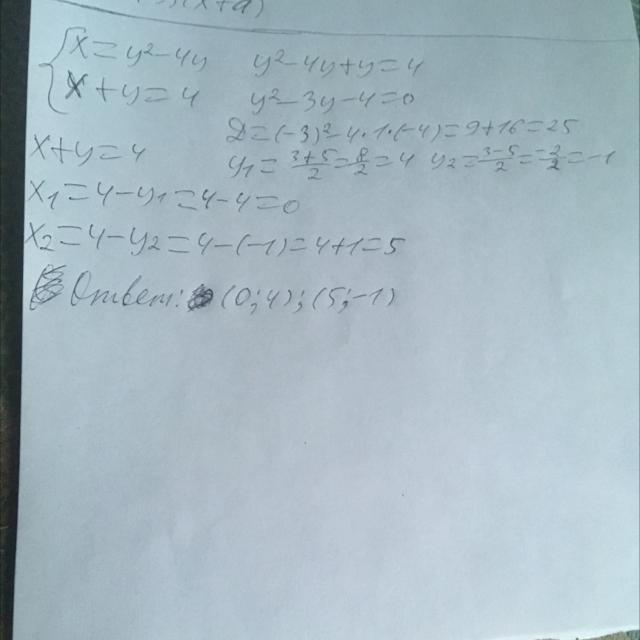 x = y² - 4y    y² - 4y + y = 4
x + y = 4    y² - 3y - 4 = 0
D = (-3)² - 4·1·(-4) = 9 + 16 = 25
x + y = 4    y₁ = (3+5)/2 = 8/2 = 4    y₂ = (3-5)/2 = -2/2 = -1
x₁ = 4 - y₁ = 4 - 4 = 0
x₂ = 4 - y₂ = 4 - (-1) = 4 + 1 = 5
Ответ: (0; 4); (5; -1)